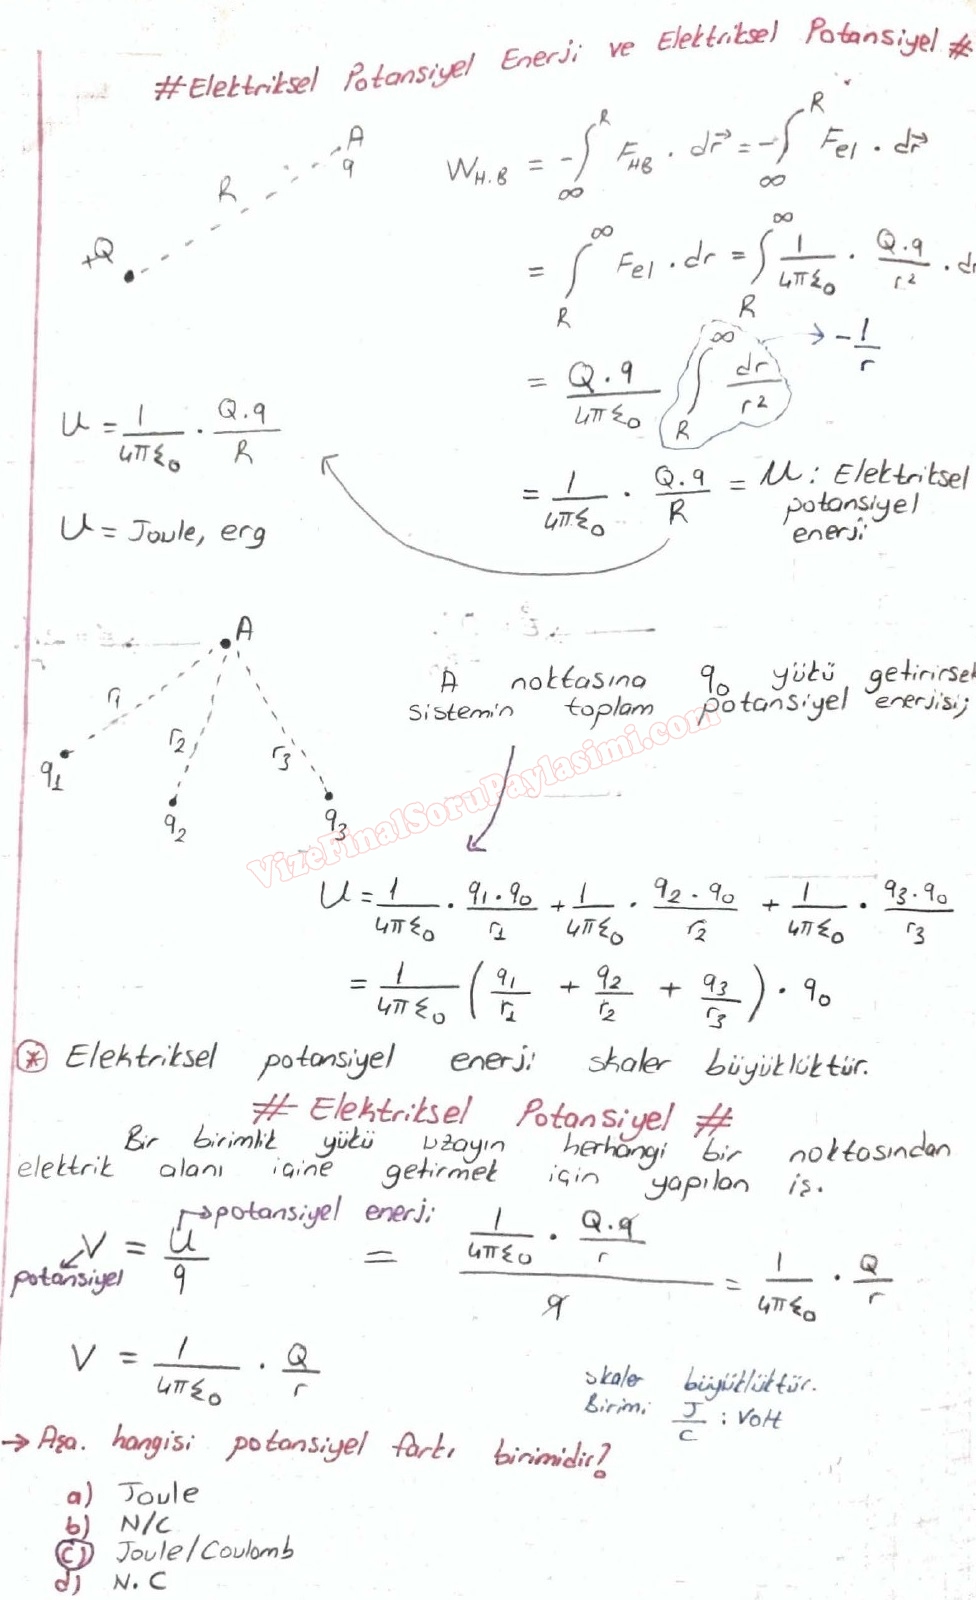 #Elektriksel Potansiyel Enerji ve Elektriksel Potansiyel #
A
q
R
+Q
W_H.B = -∫_∞^R F_HB . dr⃗ = -∫_∞^R Fel . dr⃗
= ∫_R^∞ Fel . dr = ∫_R^∞ 1/4πε0 . Q.q/r² . dr
→ -1/r
= Q.q/4πε0 ∫_R^∞ dr/r²
U = 1/4πε0 . Q.q/R
= 1/4πε0 . Q.q/R = U : Elektriksel
potansiyel
enerji
U = Joule, erg
A
r1
r2
r3
q1
q2
q3
A noktasına q0 yükü getirirsek
sistemin toplam potansiyel enerjisi;
VizeFinalSoruPaylasimi.com
U = 1/4πε0 . q1.q0/r1 + 1/4πε0 . q2.q0/r2 + 1/4πε0 . q3.q0/r3
= 1/4πε0 (q1/r1 + q2/r2 + q3/r3) . q0
* Elektriksel potansiyel enerji skaler büyüklüktür.
# Elektriksel Potansiyel #
Bir birimlik yükü uzayın herhangi bir noktasından
elektrik alanı içine getirmek için yapılan iş.
→potansiyel enerji
V = U/q = (1/4πε0 . Q.q/r)/q = 1/4πε0 . Q/r
potansiyel
V = 1/4πε0 . Q/r
skaler büyüklüktür.
Birimi J/C : Volt
→ Aşa. hangisi potansiyel farkı birimidir?
a) Joule
b) N/C
c) Joule/Coulomb
d) N.C